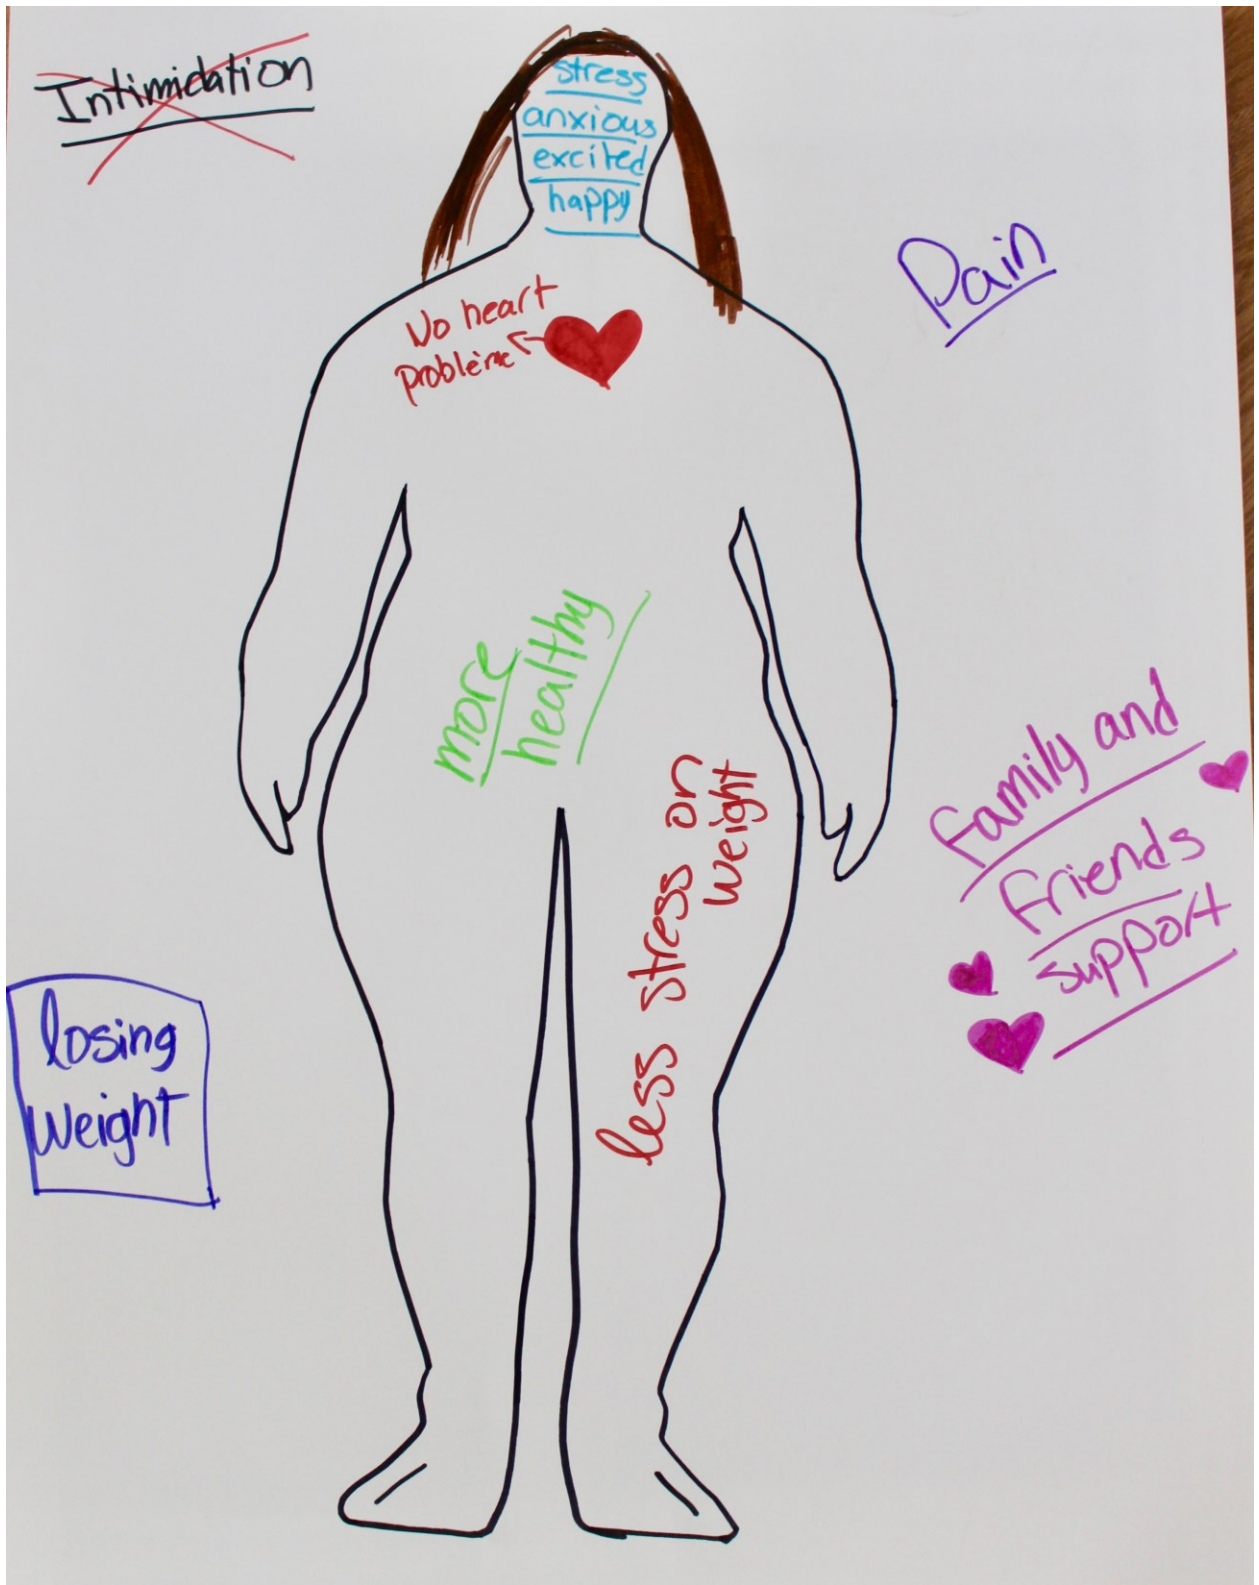 Intimidation
stress
anxious
excited
happy
Pain
No heart
problème
more
healthy
less stress on
weight
family and
friends
support
losing
weight